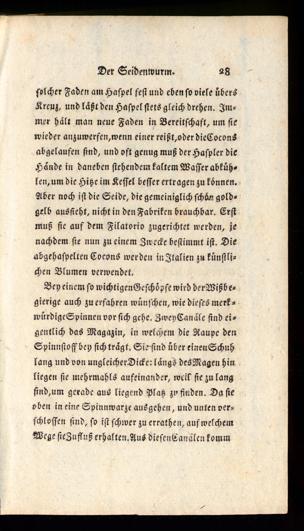 Der Seidenwurm. 28
solcher Faden am Haspel fest und eben so viele übers
Kreuz, und läßt den Haspel stets gleich drehen. Im-
mer hält man neue Faden in Bereitschaft, um sie
wieder anzuwerfen, wenn einer reißt, oder die Cocons
abgelaufen sind, und oft genug muß der Haspler die
Hände in daneben stehendem kaltem Wasser abküh-
len, um die Hitze im Kessel besser ertragen zu können.
Aber noch ist die Seide, die gemeiniglich schön gold-
gelb aussieht, nicht in den Fabriken brauchbar. Erst
muß sie auf dem Filatorio zugerichtet werden, je
nachdem sie nun zu einem Zwecke bestimmt ist. Die
abgehaspelten Cocons werden in Italien zu künstli-
chen Blumen verwendet.
Bey einem so wichtigen Geschöpfe wird der Wißbe-
gierige auch zu erfahren wünschen, wie dieses merk-
würdige Spinnen vor sich gehe. Zwey Canäle sind ei-
gentlich das Magazin, in welchem die Raupe den
Spinnstoff bey sich trägt. Sie sind über einen Schuh
lang und von ungleicher Dicke: längs des Magen hin
liegen sie mehrmahls aufeinander, weil sie zu lang
sind, um gerade aus liegend Platz zu finden. Da sie
oben in eine Spinnwarze ausgehen, und unten ver-
schlossen sind, so ist schwer zu errathen, auf welchem
Wege sie Zufluß erhalten. Aus diesen Canälen komm